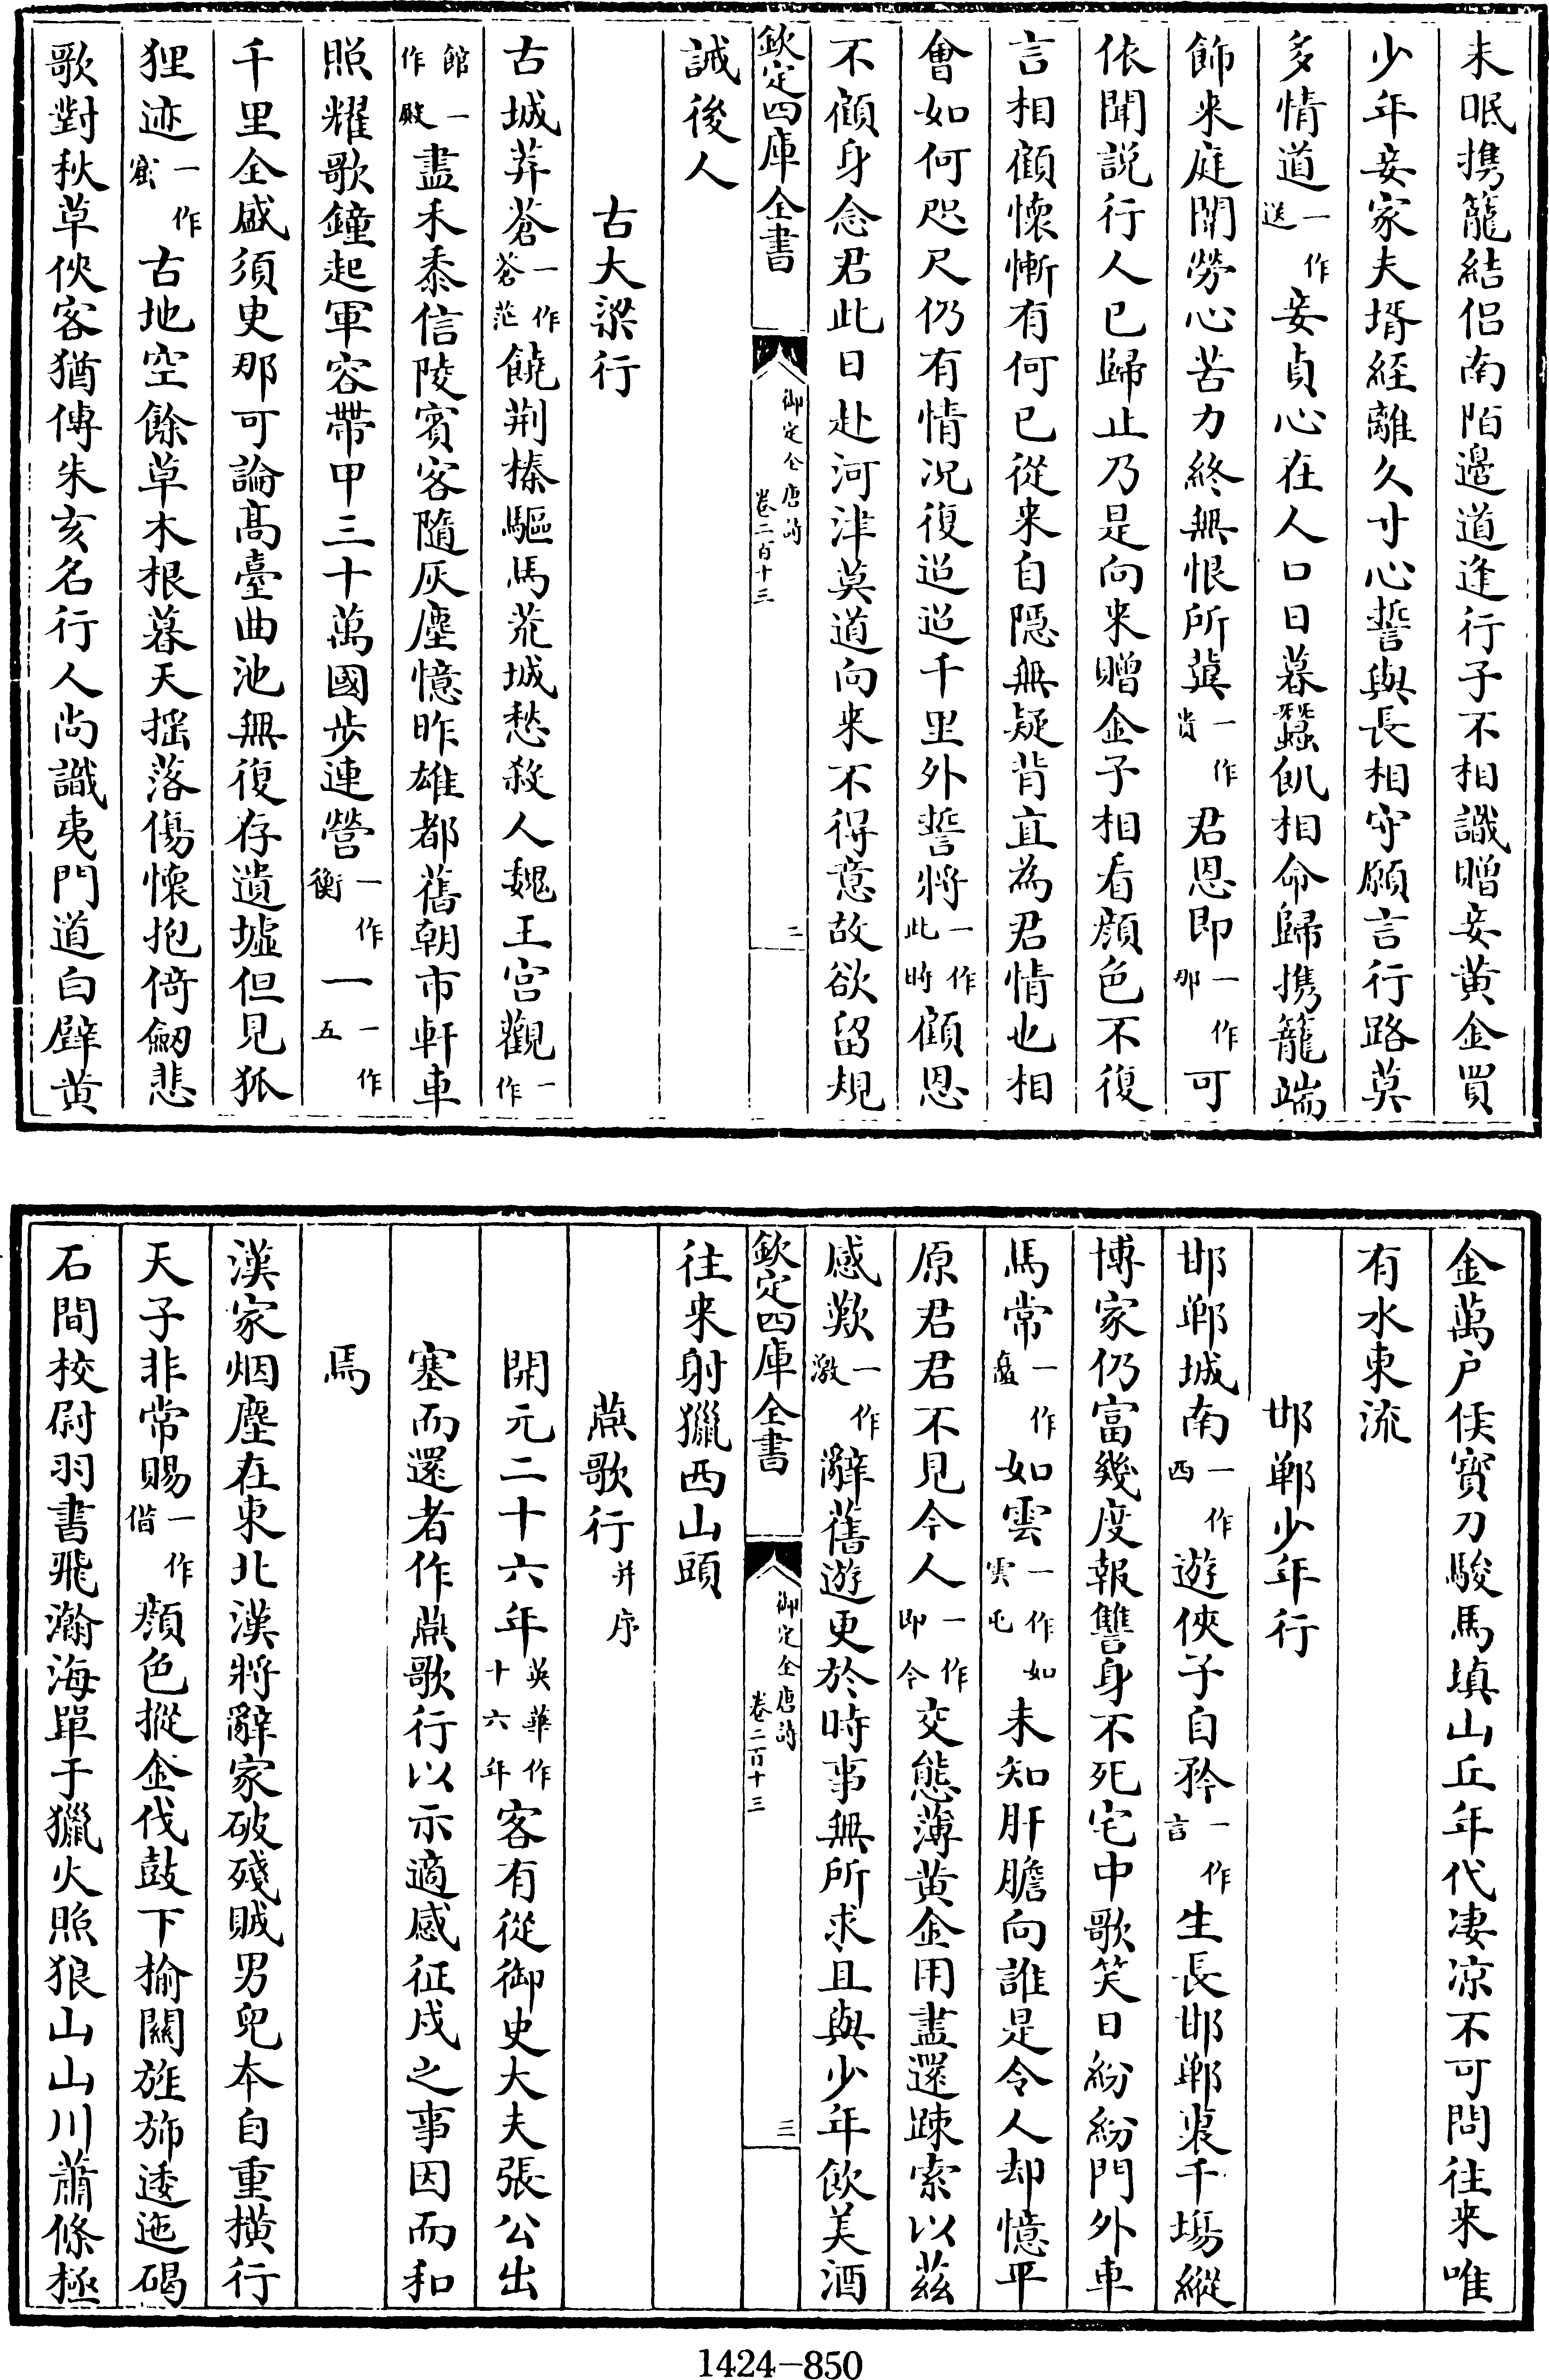 未眠携籠結侣南陌邉道逢行子不相識贈妾黄金買
少年妾家夫壻經離久寸心誓與長相守願言行路莫
多情道一作送妾貞心在人口日暮蠶飢相命歸携籠端
飾来庭闈勞心苦力終無恨所冀一作肯君恩即一作那可
依聞説行人已歸止乃是向来贈金子相看顔色不復
言相顧懷慚有何已從来自隠無疑背直為君情也相
會如何咫尺仍有情况復迢迢千里外誓將一作此時顧恩
不顧身念君此日赴河津莫道向来不得意故欲留規
欽定四庫全書
御定全唐詩 卷二百十三
二
誡後人
古大梁行
古城莽蒼一作蒼茫饒荆榛驅馬荒城愁殺人魏王宫觀一作
館一作殿盡禾黍信陵賓客隨灰塵憶昨雄都舊朝市軒車
照耀歌鐘起軍容帶甲三十萬國步連營一作衡一一作五
千里全盛須臾那可論髙臺曲池無復存遺墟但見狐
狸迹一作窟古地空餘草木根暮天摇落傷懷抱倚劒悲
歌對秋草俠客猶傳朱亥名行人尚識夷門道白璧黄
金萬户侯寳刀駿馬填山丘年代凄凉不可問往来唯
有水東流
邯鄲少年行
邯鄲城南一作西遊俠子自矜一作言生長邯鄲裏千塲縱
博家仍富幾度報讐身不死宅中歌笑日紛紛門外車
馬常一作盡如雲一作如雲屯未知肝膽向誰是令人却憶平
原君君不見今人一作即今交態薄黄金用盡還疎索以兹
感歎一作激辭舊遊更於時事無所求且與少年飲美酒
欽定四庫全書
御定全唐詩 卷二百十三
三
往来射獵西山頭
燕歌行并序
開元二十六年英華作十六年客有從御史大夫張公出
塞而還者作燕歌行以示適感征戍之事因而和
焉
漢家烟塵在東北漢將辭家破殘賊男兒本自重横行
天子非常賜一作借顔色摐金伐鼓下榆關旌斾逶迤碣
石間校尉羽書飛瀚海單于獵火照狼山山川蕭條極
1424-850